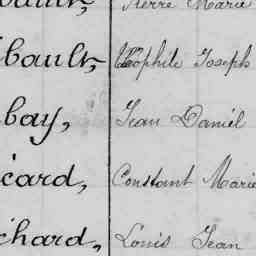 Pierre Marie
bault, Théophile Joseph
bay, Jean Daniel
card, Constant Marie
chard, Louis Jean